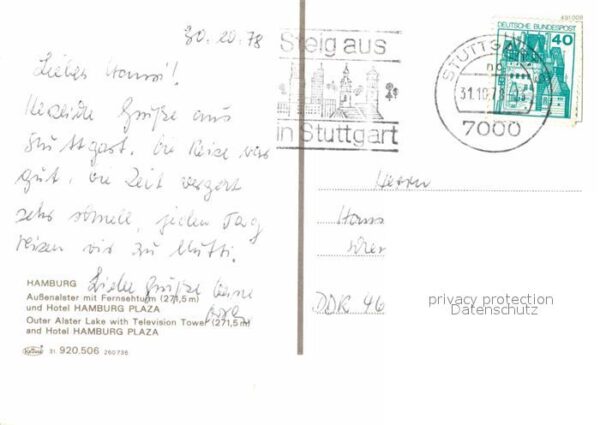 30.10.78
Lieber Hansi!
Herzliche Grüße aus
Stuttgart. Die Reise war
gut, die Zeit vergeht
sehr schnell, jeden Tag
reisen wir zu Mutti.
Liebe Grüße Deine
HAMBURG
Außenalster mit Fernsehturm (271,5 m)
und Hotel HAMBURG PLAZA
Outer Alster Lake with Television Tower (271,5 m)
and Hotel HAMBURG PLAZA
Krüger 31 920.506 260736
Steig aus
in Stuttgart
STUTTGART
31.10.78
7000
491008
DEUTSCHE BUNDESPOST
40
Herrn
Hans
DDR 46
privacy protection
Datenschutz